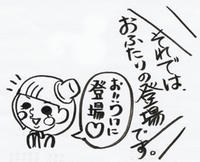 それでは、
おふたりの登場です。
お!!ついに
登場♡